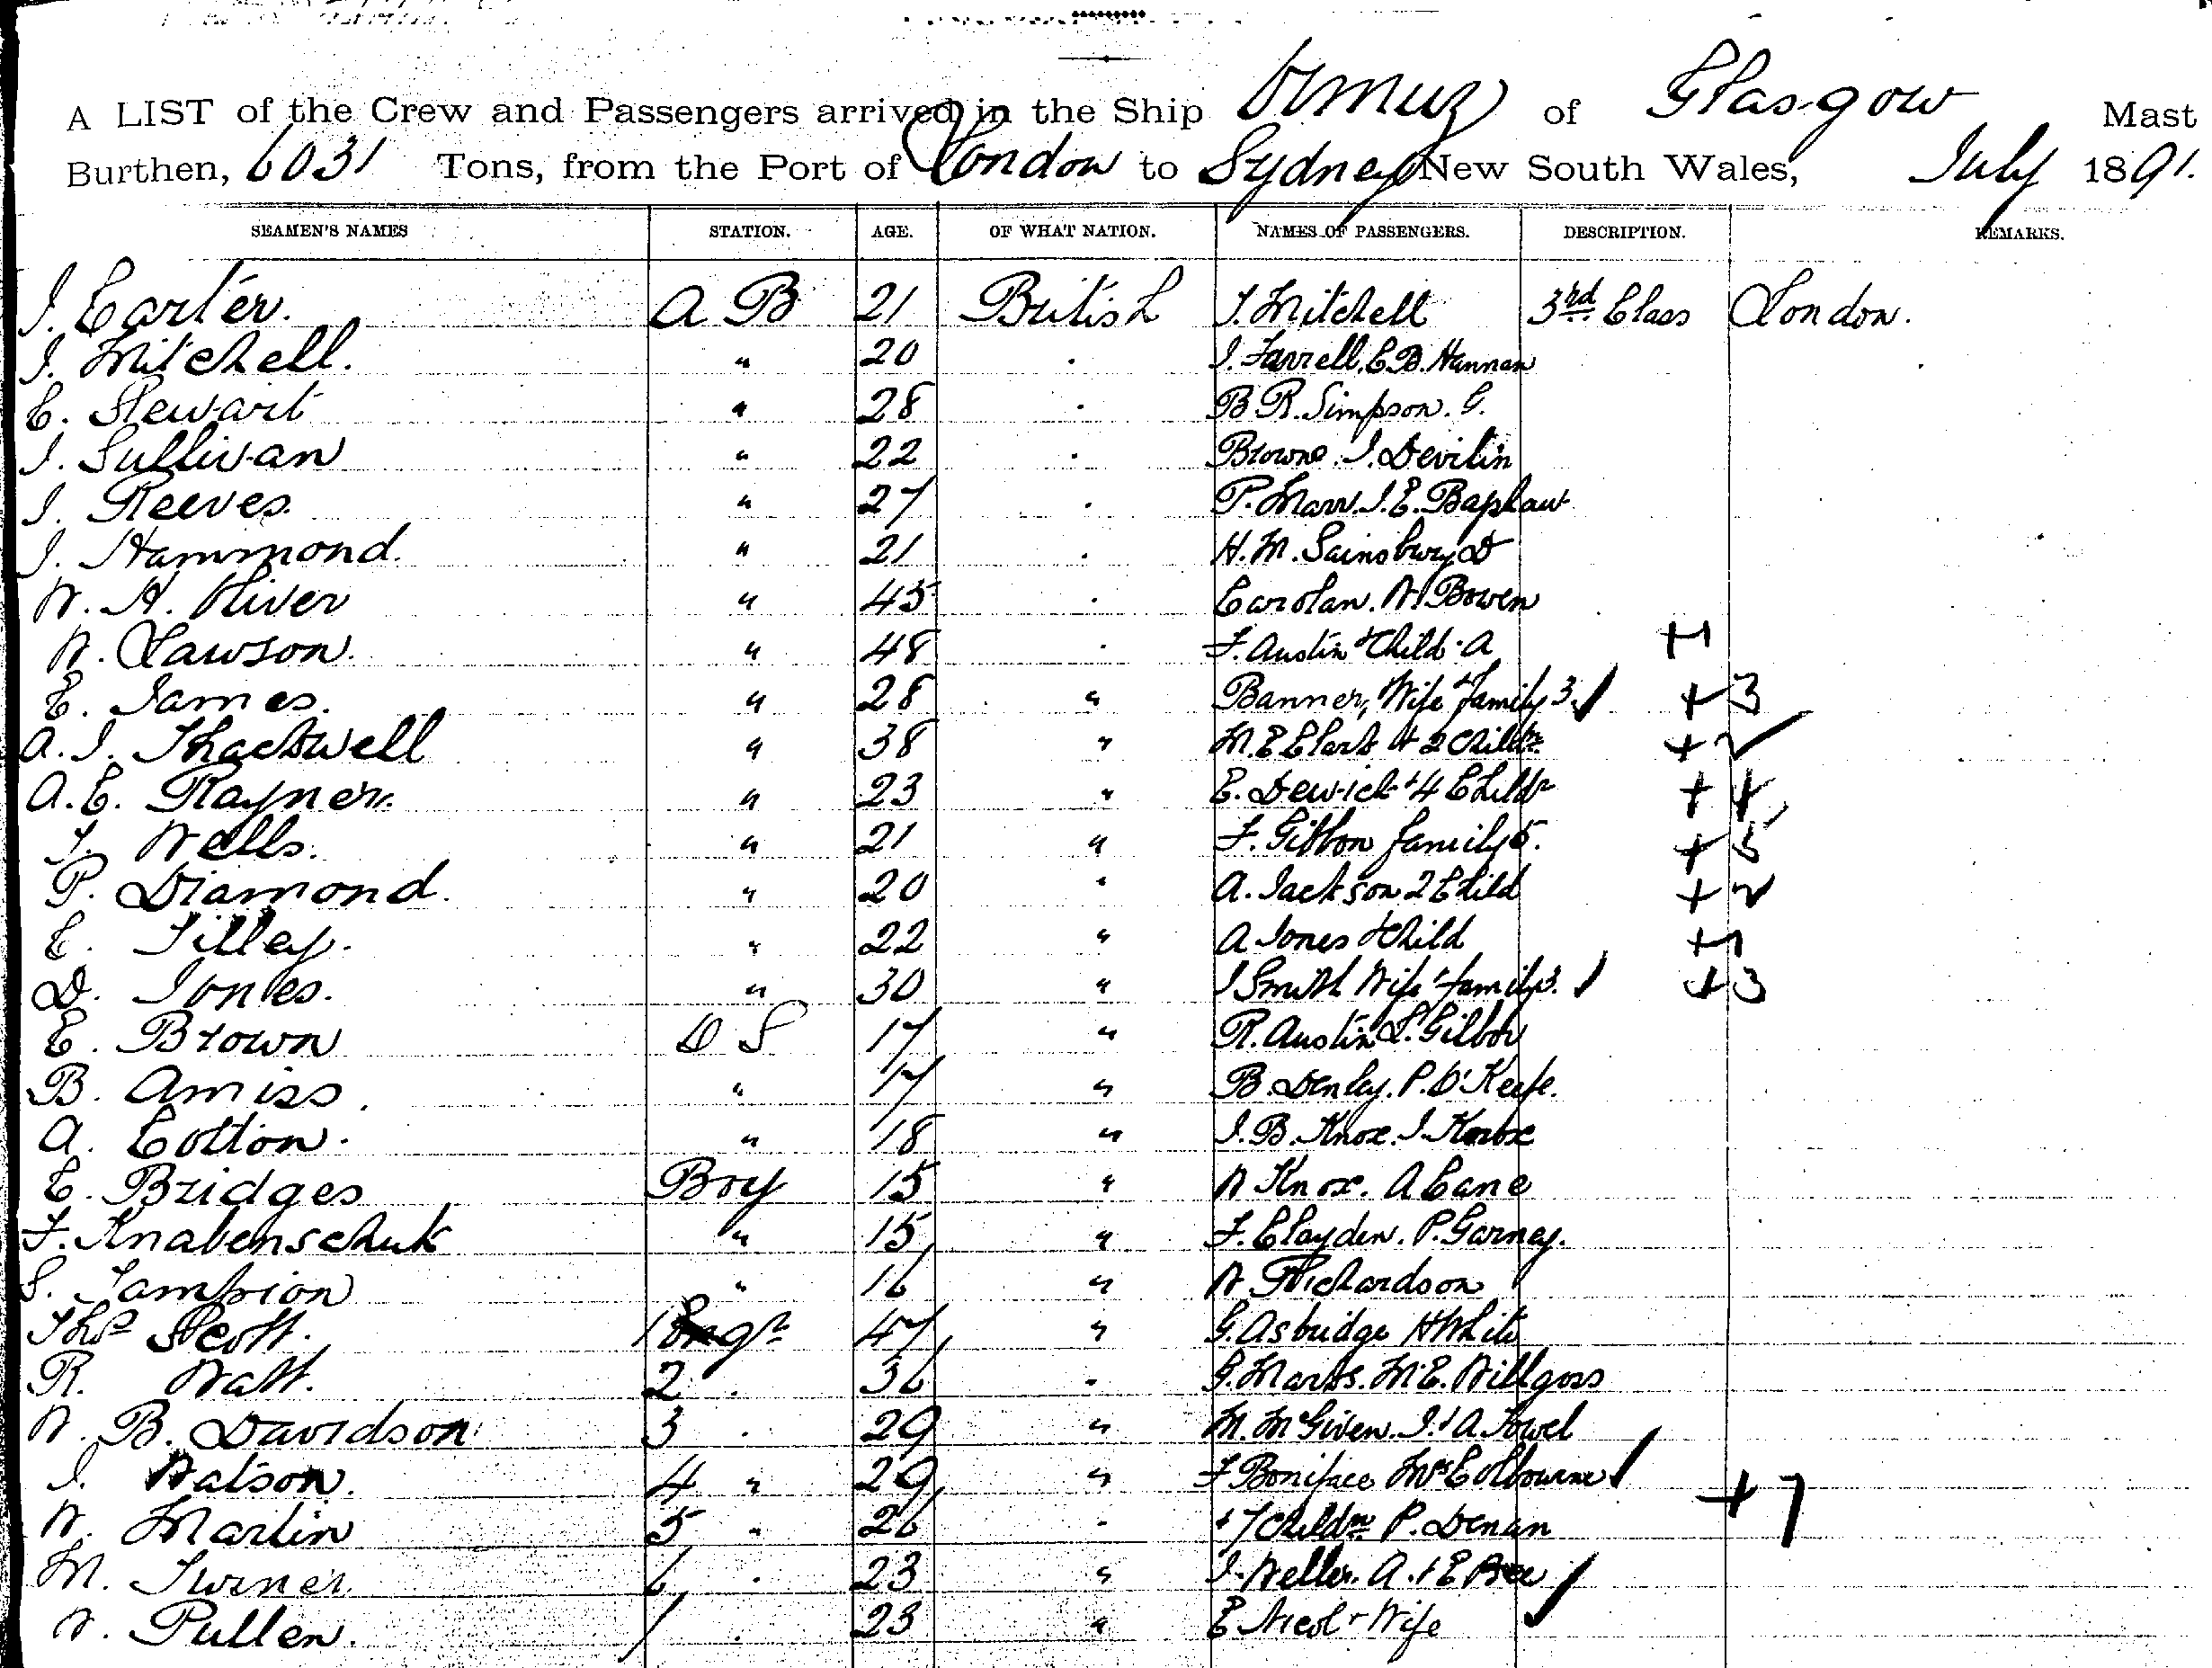 A LIST of the Crew and Passengers arrived in the Ship Ormuz of Glasgow Mast
Burthen, 6031 Tons, from the Port of London to Sydney New South Wales, July 1891.
SEAMEN'S NAMES STATION. AGE. OF WHAT NATION. NAMES OF PASSENGERS. DESCRIPTION. REMARKS.
J. Carter. A B 21 British J. Mitchell 3rd Class London.
J. Mitchell. " 20 . J. Farrell. C B. Hannan
C. Stewart " 28 . B R. Simpson. G.
J. Sullivan " 22 . Browne. J. Devilin
J. Reeves. " 27 . P. Marr. J. E. Bapshaw
J. Hammond. " 21 . H. M. Sainsbury D
W. H. Oliver " 45 . Carolan. W. Bowen
W. Lawson. " 48 . F. Austin + Child. A +1
E. James. " 28 " Banner, Wife + family 3. +3
A. J. Thackwell " 38 " M. E Clark + 2 Childn +2
A. E. Rayner. " 23 " E. Dewick + 4 Childn +4
T. Wells. " 21 " F. Gibbon family 5. +5
P. Diamond. " 20 " A. Jackson 2 Child +2
C. Tilley. " 22 " A Jones + Child +1
D. Jones. " 30 " J Smith Wife + family 3. +3
E. Brown O S 17 " R. Austin L. Gilbon
B. Amiss. " 17 " B. Denley. P. O'Keefe.
A. Cotton. " 18 " J. B. Knox. J. Knox
C. Bridges Boy 15 " W Knox. A Cane
F. Knabenschuk " 15 " F. Clayden. P. Garney.
S. Tampion " 16 " W Richardson
Thos Scott. 1 Engr 47 " G. Asbridge H White
R. Watt. 2 . 36 " G. Marks. M. E. Willgoss
W. B. Davidson 3 . 29 " M. McGiven. J. + A Towel
J. Watson. 4 " 29 " F Boniface Mrs Colbourne
W. Martin 5 " 26 " + 7 Childn P. Denan +7
M. Turner 6 . 23 " J. Weller. A. + E Bee
W. Pullen. 7 . 23 " E Nicol + Wife